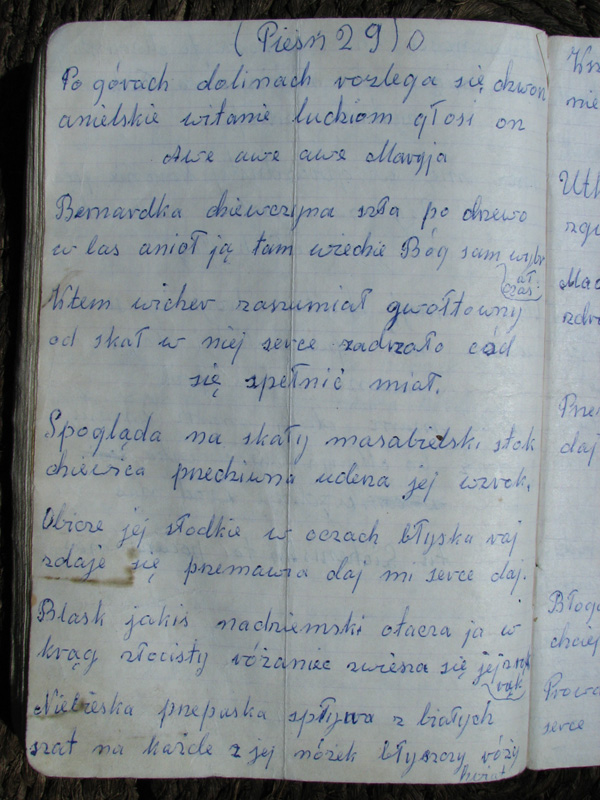 (Pieśń 29)
Po górach dolinach rozlega się dzwon
anielskie witanie ludziom głosi on
Awe awe awe Maryja
Bernardka dziewczyna szła po drzewo
w las anioł ją tam wiedzie Bóg sam wybr
ał
czas.
Wtem wicher zaszumiał gwołtowny
od skał w niej serce zadrżało cód
się spełnić miał.
Spogląda na skały masabielski stok
dziewica przedziwna uderza jej wzrok.
Obicze jej słodkie w oczach błyska raj
zdaje się przemawia daj mi serce daj.
Blask jakiś nadziemski otacza ja w
krąg złocisty różaniec zwiesza się jej z
rąk
Niebieska przepaska spływa z białych
szat na każde z jej nóżek błyszczy róży
kwiat
nie
Uth
zgu
zdr
Prze
daj
Błog
chciej
Prowa
serce